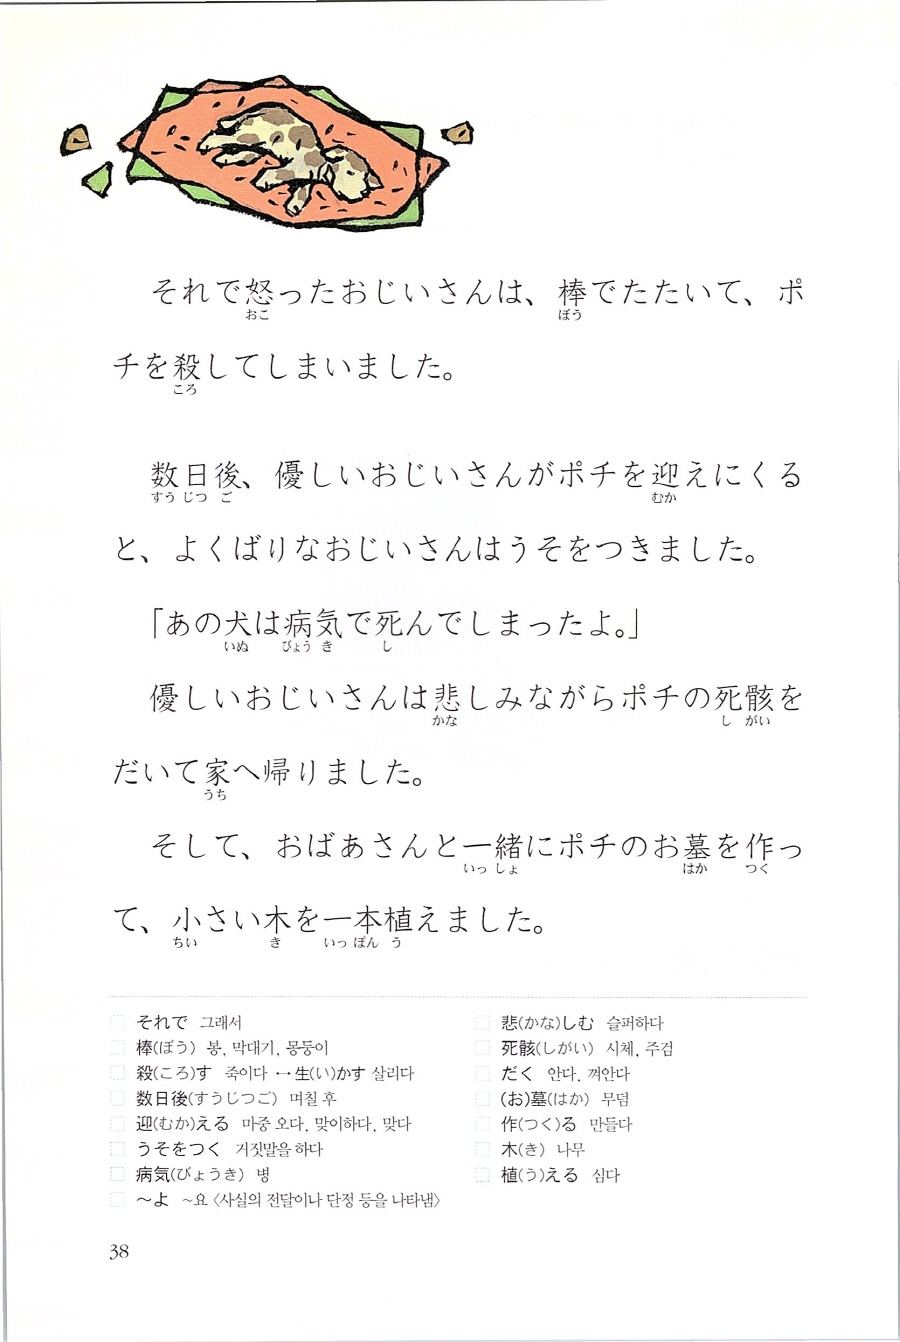 それで怒ったおじいさんは、棒でたたいて、ポ
おこ ぼう
チを殺してしまいました。
ころ
数日後、優しいおじいさんがポチを迎えにくる
すう じつ ご むか
と、よくばりなおじいさんはうそをつきました。
「あの犬は病気で死んでしまったよ。」
いぬ びょう き し
優しいおじいさんは悲しみながらポチの死骸を
かな し がい
だいて家へ帰りました。
うち
そして、おばあさんと一緒にポチのお墓を作っ
いっ しょ はか つく
て、小さい木を一本植えました。
ちい き いっ ぽん う
それで 그래서
棒(ぼう) 봉, 막대기, 몽둥이
殺(ころ)す 죽이다 ↔ 生(い)かす 살리다
数日後(すうじつご) 며칠 후
迎(むか)える 마중 오다, 맞이하다, 맞다
うそをつく 거짓말을 하다
病気(びょうき) 병
～よ ~요 〈사실의 전달이나 단정 등을 나타냄〉
悲(かな)しむ 슬퍼하다
死骸(しがい) 시체, 주검
だく 안다, 껴안다
(お)墓(はか) 무덤
作(つく)る 만들다
木(き) 나무
植(う)える 심다
38